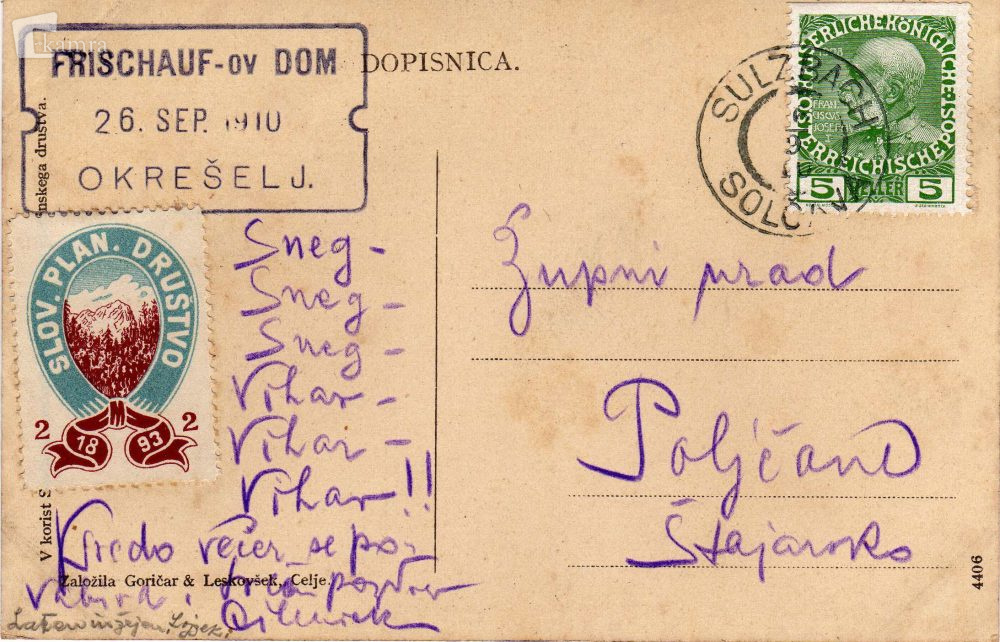 Kamra
FRISCHAUF-ov DOM
26. SEP. 1910
OKREŠELJ.
DOPISNICA.
SULZBACH
SOLČAVA
KAISERLICHE KÖNIGLICHE
ÖSTERREICHISCHE POST
5 HELLER 5
SLOV. PLAN. DRUŠTVO
2 M 2
18 93
Sneg-
Sneg-
Sneg-
Vihar-
Vihar-
Vihar!!
V sredo večer se
Župni urad
Poljčane
Štajarsko
V korist
nskega društva.
Založila Goričar & Leskovšek, Celje.
4406